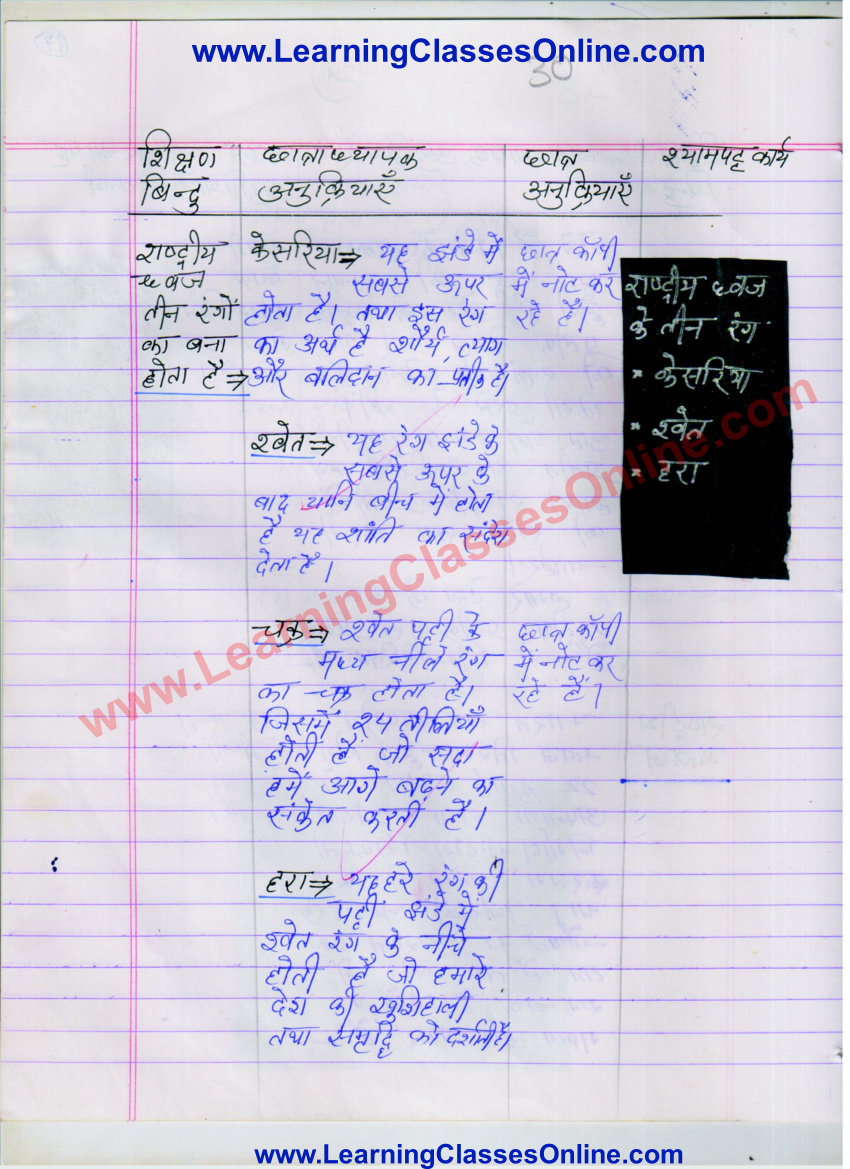 www.LearningClassesOnline.com
30
शिक्षण बिन्दु
छात्राध्यापक अनुक्रियाएँ
छात्र अनुक्रियाएँ
श्यामपट्ट कार्य
राष्ट्रीय
ध्वज
तीन रंगों
का बना
होता है ⇒
केसरिया ⇒ यह झंडे में
सबसे ऊपर
होता है। तथा इस रंग
का अर्थ है शौर्य, त्याग
और बलिदान का प्रतीक है।
छात्र कॉपी
में नोट कर
रहे हैं।
राष्ट्रीय ध्वज
के तीन रंग
* केसरिया
* श्वेत
* हरा
श्वेत ⇒ यह रंग झंडे के
सबसे ऊपर के
बाद यानि बीच में होता
है यह शांति का संदेश
देता है।
चक्र ⇒ श्वेत पट्टी के
मध्य नीले रंग
का चक्र होता है।
जिसमें २४ तीलियाँ
होती है जो सदा
हमें आगे बढ़ने का
संकेत करती है।
छात्र कॉपी
में नोट कर
रहे हैं।
हरा ⇒ यह हरे रंग की
पट्टी झंडे में
श्वेत रंग के नीचे
होती है जो हमारे
देश की खुशिहाली
तथा समृद्धि को दर्शाती है।
www.LearningClassesOnline.com
www.LearningClassesOnline.com